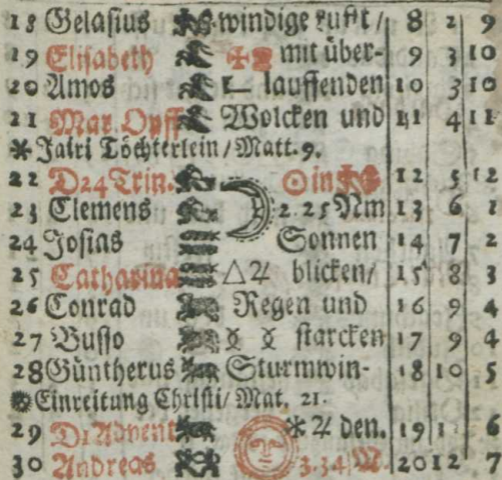 18 Gelasius windige Lufft / 8 2 9
19 Elisabeth mit über- 9 3 10
20 Amos lauffenden 10 3 10
21 Mar. Opff Wolcken und 11 4 11
* Jairi Töchterlein / Matt. 9.
22 D24 Trin. ☉ in 12 5 12
23 Clemens 2. 25 Nm 13 6 1
24 Josias Sonnen 14 7 2
25 Catharina △ ♃ blicken / 15 8 3
26 Conrad Regen und 16 9 4
27 Busso starcken 17 9 4
28 Güntherus Sturmwin- 18 10 5
Einreitung Christi / Mat. 21.
29 D1 Advent * ♃ den. 19 1 6
30 Andreas 3. 34 N. 20 12 7